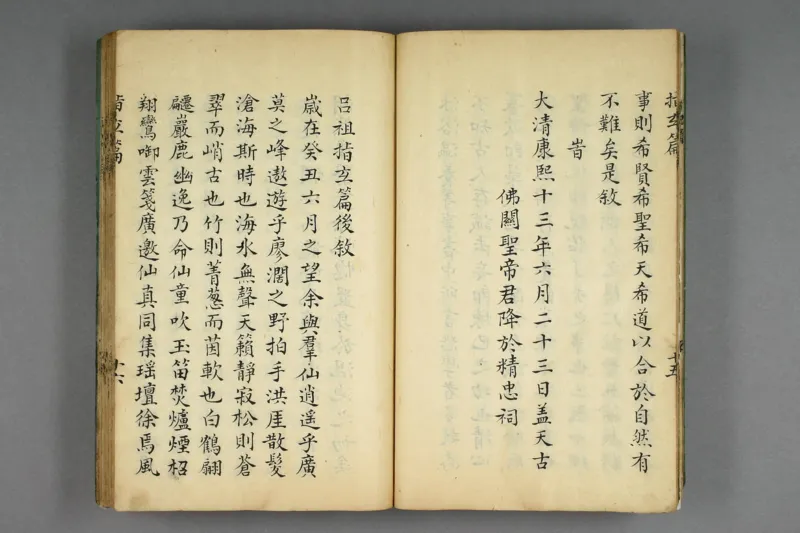 指玄篇
事則希賢希聖希天希道以合於自然有
不難矣是敘
旹
大清康熙十三年六月二十三日蓋天古
佛關聖帝君降於精忠祠
十五
呂祖指玄篇後敘
歲在癸丑六月之望余與羣仙逍遥乎廣
莫之峰遨遊乎廖濶之野拍手洪厓散髪
滄海斯時也海水無聲天籟靜寂松則蒼
翠而峭古也竹則菁葱而茵軟也白鶴翩
䙴巖鹿幽逸乃命仙童吹玉笛焚爐煙柖
翔鸞啣雲箋廣邀仙真同集瑶壇徐焉風
指玄篇
十六